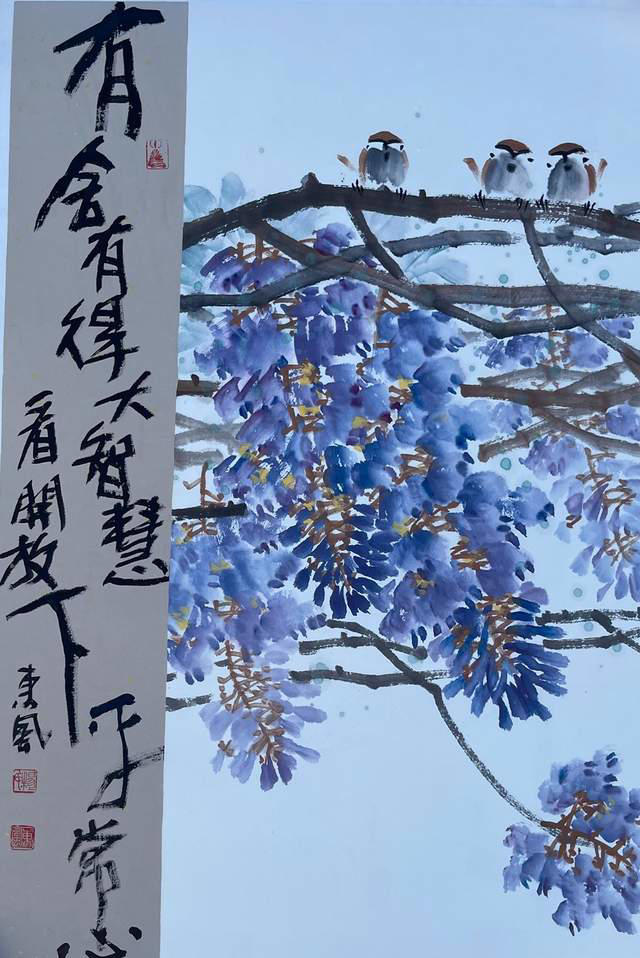 有舍有得大智慧平常
看開放下